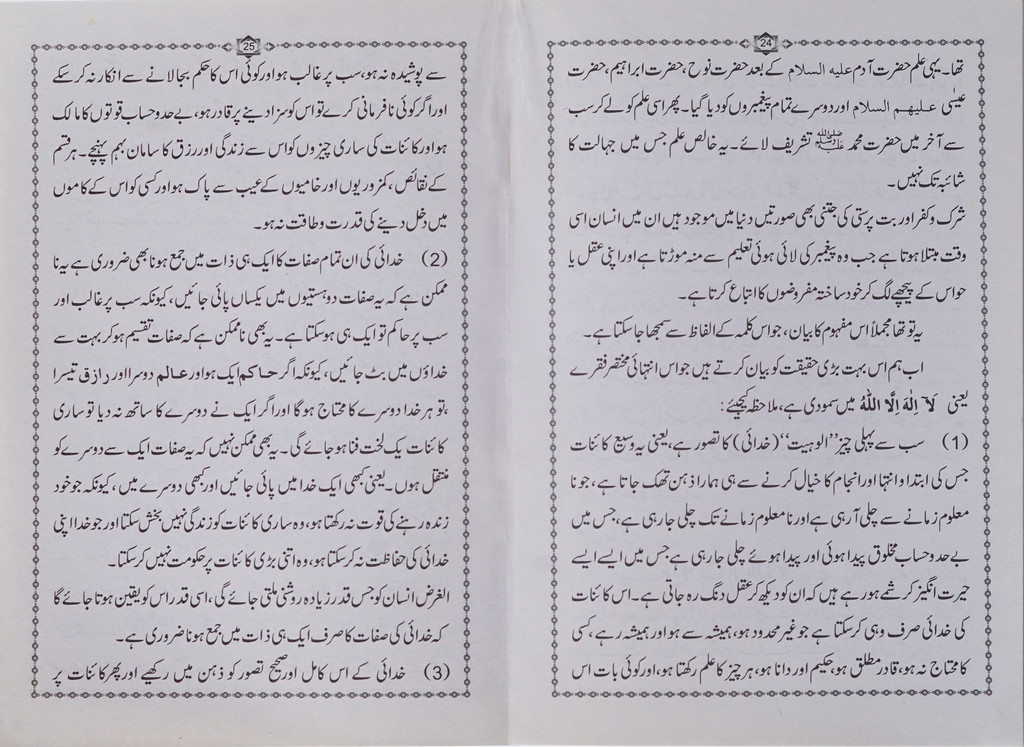 24
تھا۔ یہی علم حضرت آدم علیه السلام کے بعد حضرت نوح، حضرت ابراہیم، حضرت
عیسیٰ علیهم السلام اور دوسرے تمام پیغمبروں کو دیا گیا۔ پھر اسی علم کو لے کر سب
سے آخر میں حضرت محمد ﷺ تشریف لائے۔ یہ خالص علم جس میں جہالت کا
شائبہ تک نہیں۔
شرک و کفر اور بت پرستی کی جتنی بھی صورتیں دنیا میں موجود ہیں ان میں انسان اسی
وقت مبتلا ہوتا ہے جب وہ پیغمبر کی لائی ہوئی تعلیم سے منہ موڑتا ہے اور اپنی عقل یا
حواس کے پیچھے لگ کر خود ساختہ مفروضوں کا اتباع کرتا ہے۔
یہ تو تھا مجملاً اس مفہوم کا بیان، جو اس کلمہ کے الفاظ سے سمجھا جا سکتا ہے۔
اب ہم اس بہت بڑی حقیقت کو بیان کرتے ہیں جو اس انتہائی مختصر فقرے
یعنی لَآ اِلٰهَ اِلَّا اللّٰهُ میں سمودی ہے، ملاحظہ کیجئے:
(1) سب سے پہلی چیز ’’الوہیت‘‘ (خدائی) کا تصور ہے، یعنی یہ وسیع کائنات
جس کی ابتدا و انتہا اور انجام کا خیال کرنے سے ہی ہمارا ذہن تھک جاتا ہے، جو نا
معلوم زمانے سے چلی آ رہی ہے اور نا معلوم زمانے تک چلی جا رہی ہے، جس میں
بے حد و حساب مخلوق پیدا ہوئی اور پیدا ہوئے چلی جا رہی ہے جس میں ایسے ایسے
حیرت انگیز کرشمے ہو رہے ہیں کہ ان کو دیکھ کر عقل دنگ رہ جاتی ہے۔ اس کائنات
کی خدائی صرف وہی کر سکتا ہے جو غیر محدود ہو، ہمیشہ سے ہو اور ہمیشہ رہے، کسی
کا محتاج نہ ہو، قادر مطلق ہو، حکیم اور دانا ہو، ہر چیز کا علم رکھتا ہو، اور کوئی بات اس
25
سے پوشیدہ نہ ہو، سب پر غالب ہو اور کوئی اس کا حکم بجا لانے سے انکار نہ کر سکے
اور اگر کوئی نافرمانی کرے تو اس کو سزا دینے پر قادر ہو، بے حد و حساب قوتوں کا مالک
ہو اور کائنات کی ساری چیزوں کو اس سے زندگی اور رزق کا سامان بہم پہنچے۔ ہر قسم
کے نقائص، کمزوریوں اور خامیوں کے عیب سے پاک ہو اور کسی کو اس کے کاموں
میں دخل دینے کی قدرت و طاقت نہ ہو۔
(2) خدائی کی ان تمام صفات کا ایک ہی ذات میں جمع ہونا بھی ضروری ہے یہ نا
ممکن ہے کہ یہ صفات دو ہستیوں میں یکساں پائی جائیں، کیونکہ سب پر غالب اور
سب پر حاکم تو ایک ہی ہو سکتا ہے۔ یہ بھی ناممکن ہے کہ صفات تقسیم ہو کر بہت سے
خداؤں میں بٹ جائیں، کیونکہ اگر حاکم ایک ہو اور عالم دوسرا اور رازق تیسرا
، تو ہر خدا دوسرے کا محتاج ہوگا اور اگر ایک نے دوسرے کا ساتھ نہ دیا تو ساری
کائنات یک لخت فنا ہو جائے گی۔ یہ بھی ممکن نہیں کہ یہ صفات ایک سے دوسرے کو
منتقل ہوں۔ یعنی کبھی ایک خدا میں پائی جائیں اور کبھی دوسرے میں، کیونکہ جو خود
زندہ رہنے کی قوت نہ رکھتا ہو، وہ ساری کائنات کو زندگی نہیں بخش سکتا اور جو خدا اپنی
خدائی کی حفاظت نہ کر سکتا ہو، وہ اتنی بڑی کائنات پر حکومت نہیں کر سکتا۔
الغرض انسان کو جس قدر زیادہ روشنی ملتی جائے گی، اسی قدر اس کو یقین ہوتا جائے گا
کہ خدائی کی صفات کا صرف ایک ہی ذات میں جمع ہونا ضروری ہے۔
(3) خدائی کے اس کامل اور صحیح تصور کو ذہن میں رکھیے اور پھر کائنات پر